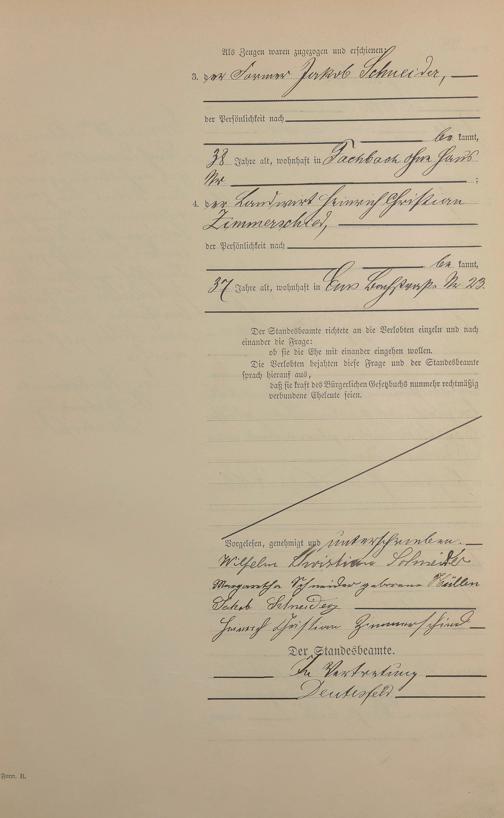 Als Zeugen waren zugezogen und erschienen:
3. der Former Jakob Schneider,
der Persönlichkeit nach
be kannt,
38 Jahre alt, wohnhaft in Fachbach ohne Haus
Nr ;
4. der Landwirt Heinrich Christian
Zimmerschied,
der Persönlichkeit nach
be kannt,
37 Jahre alt, wohnhaft in Ems Bachstraße Nr 23.
Der Standesbeamte richtete an die Verlobten einzeln und nach
einander die Frage:
ob sie die Ehe mit einander eingehen wollen.
Die Verlobten bejahten diese Frage und der Standesbeamte
sprach hierauf aus,
daß sie kraft des Bürgerlichen Gesetzbuchs nunmehr rechtmäßig
verbundene Eheleute seien.
Vorgelesen, genehmigt und unterschrieben.
Wilhelm Christian Schneider
Margaretha Schneider geborene
Jakob Schneider
Heinrich Christian Zimmerschied
Der Standesbeamte.
In Vertretung
Form. B.